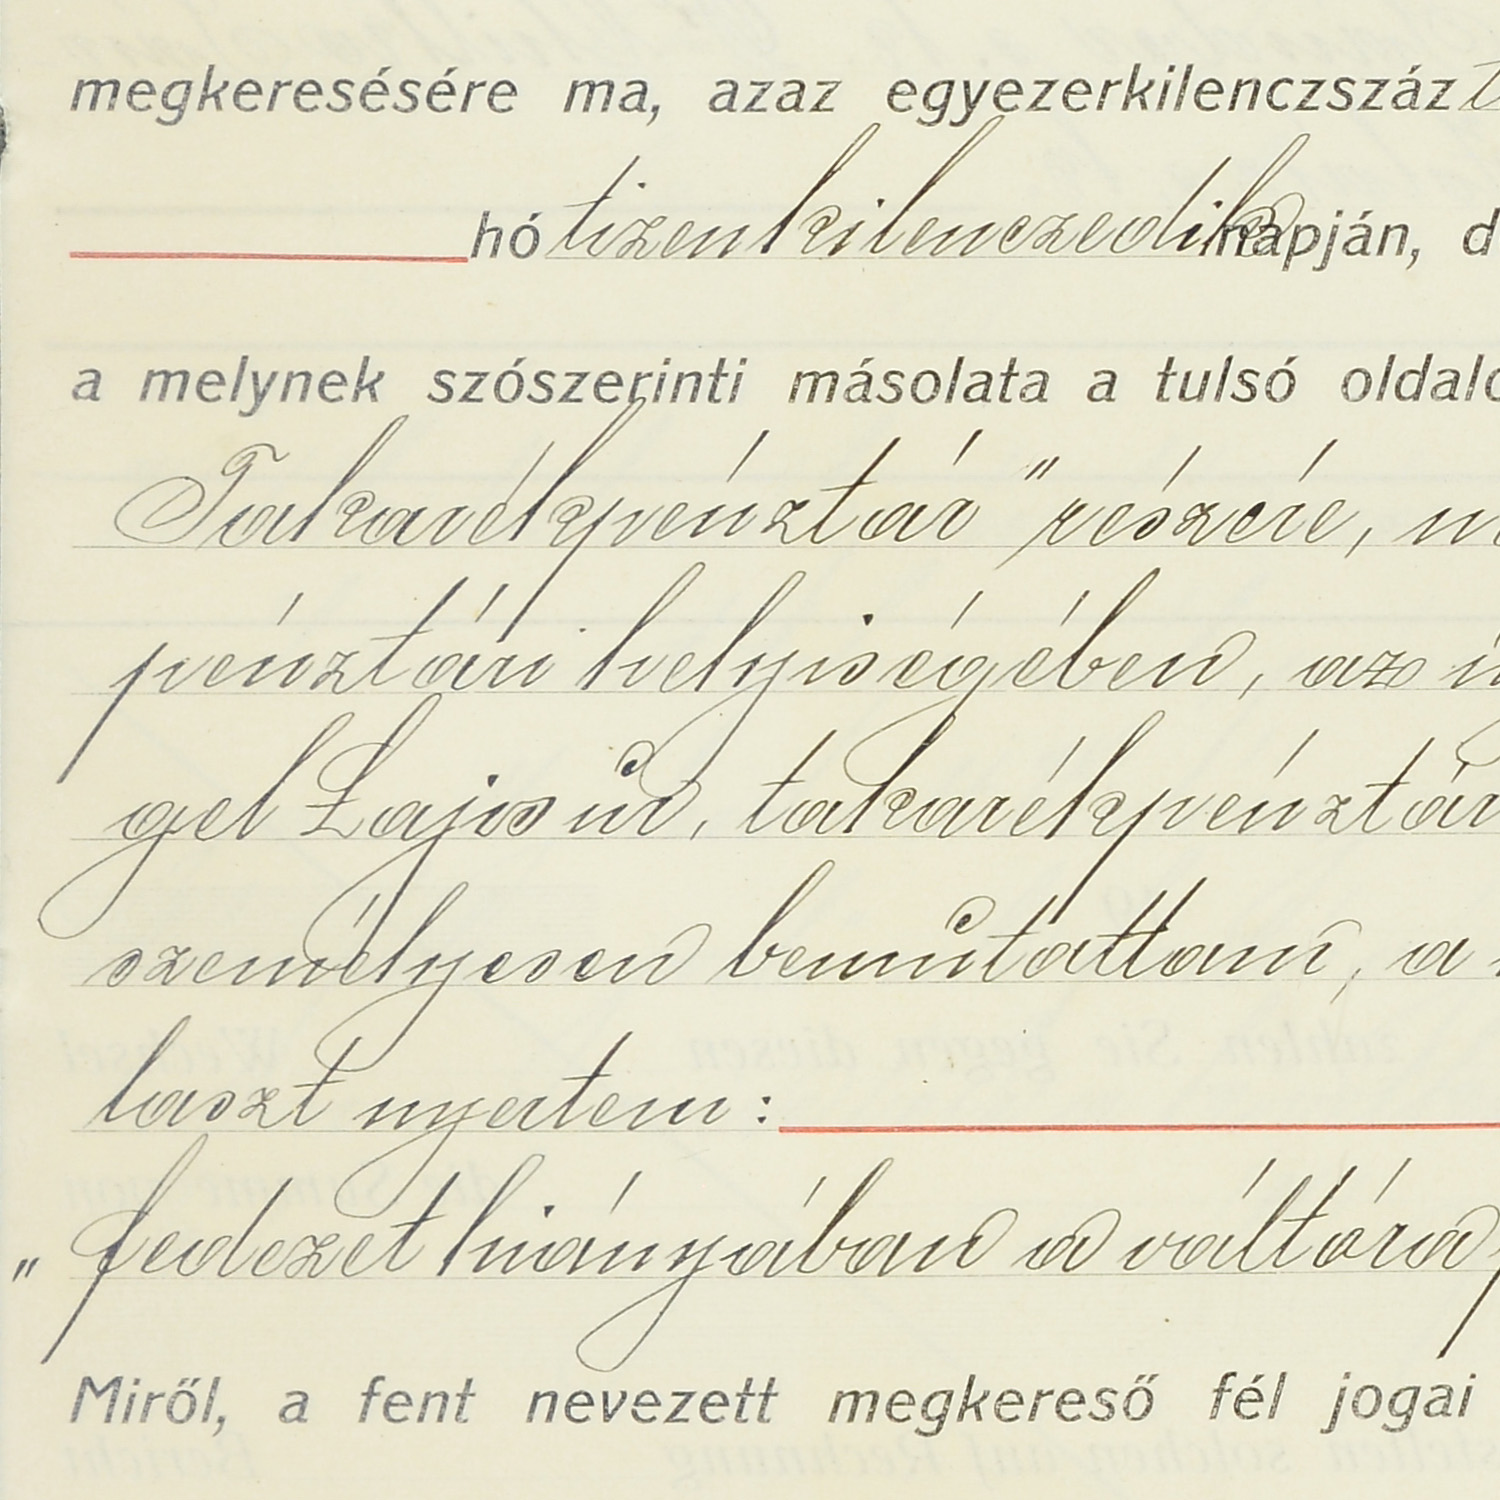 megkeresésére ma, azaz egyezerkilenczszáz
hó tizenkilenczedik napján,
a melynek szószerinti másolata a tulsó
Takarékpénztár" részére,
pénztári helyiségében, az
gel Lajos úr, takarékpénztár
személyesen bemutattam, a
laszt nyertem:
„fedezet hiányában a váltóra
Miről, a fent nevezett megkereső fél jogai